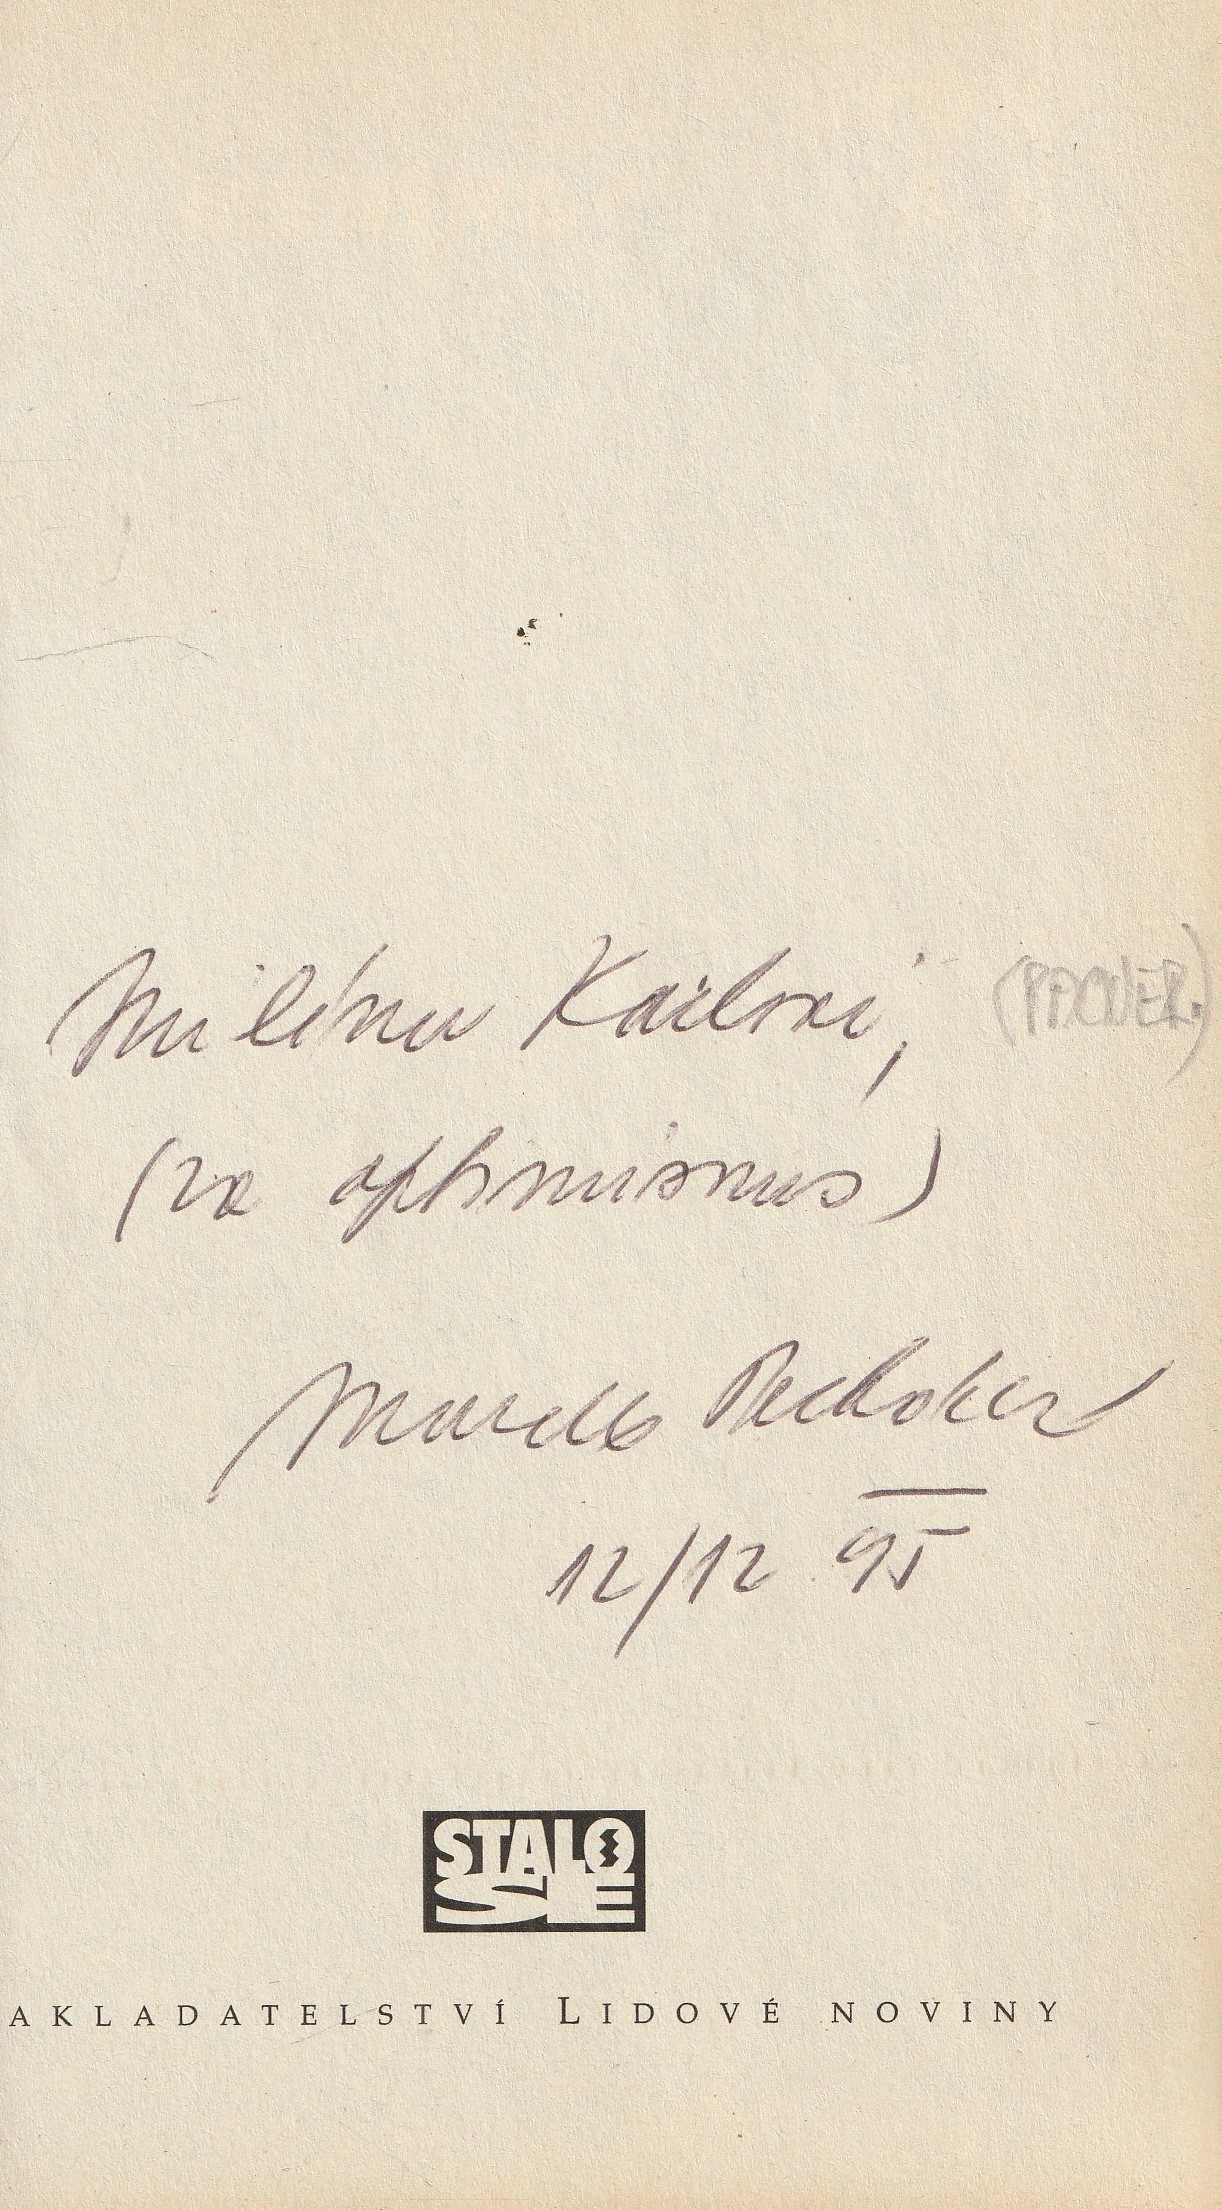 Milému Karlovi, (PACNER.)
(za optimismus)
12/12 95
STALO
SE
AKLADATELSTVÍ LIDOVÉ NOVINY